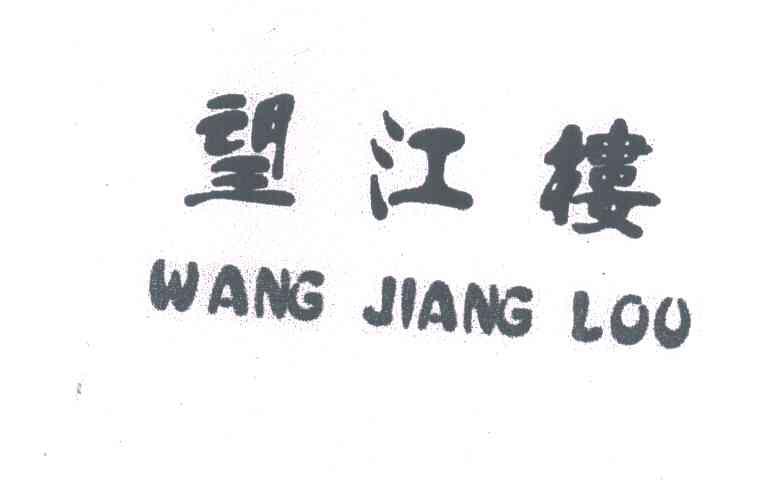 望江樓
WANG JIANG LOU